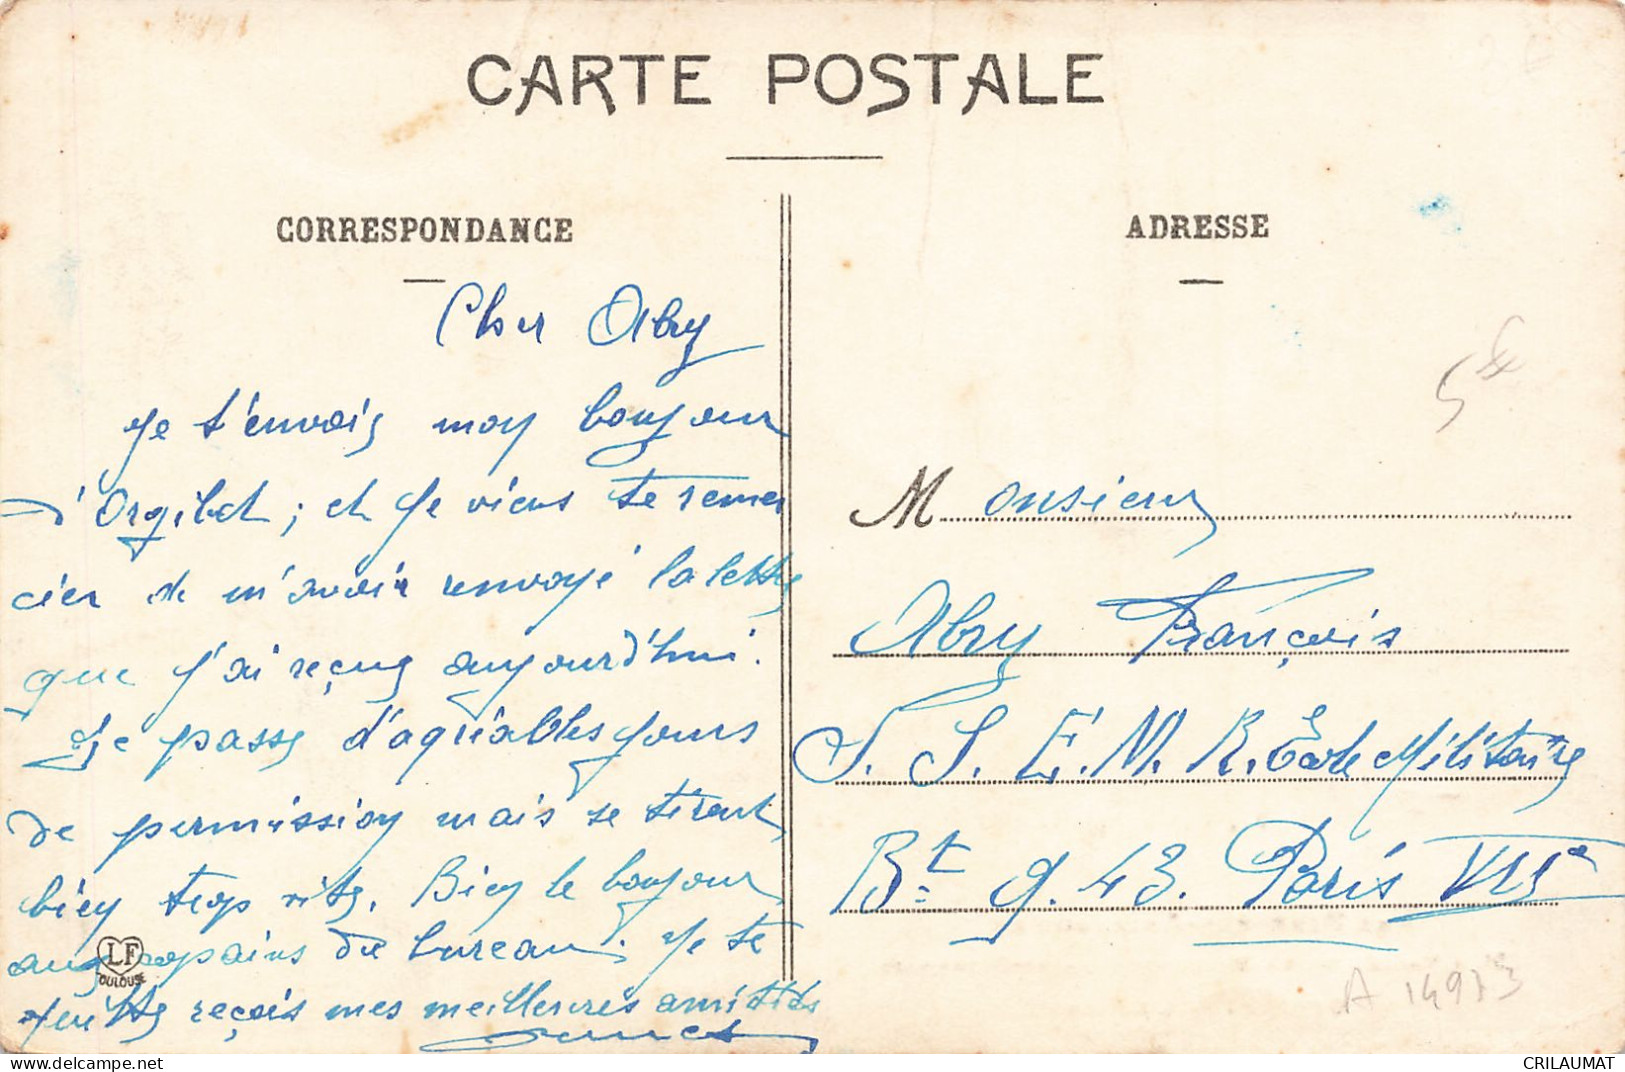 CARTE POSTALE
CORRESPONDANCE
Cher Abry
Je t'envois mon bonjour
d'Orgibet ; et je viens te remer
cier de m'avoir renvoyé la lettre
que j'ai reçue aujourd'hui.
Je passe d'agréables jours
de permission mais se tirent
bien trop vite. Bien le bonjour
aux copains du bureau. Je te
quitte reçois mes meilleures amitiés
LF
TOULOUSE
ADRESSE
5€
Monsieur
Abry François
S. S. E. M. R. École Militaire
Bt g. 43. Paris VIIe
A 14973
CRILAUMAT